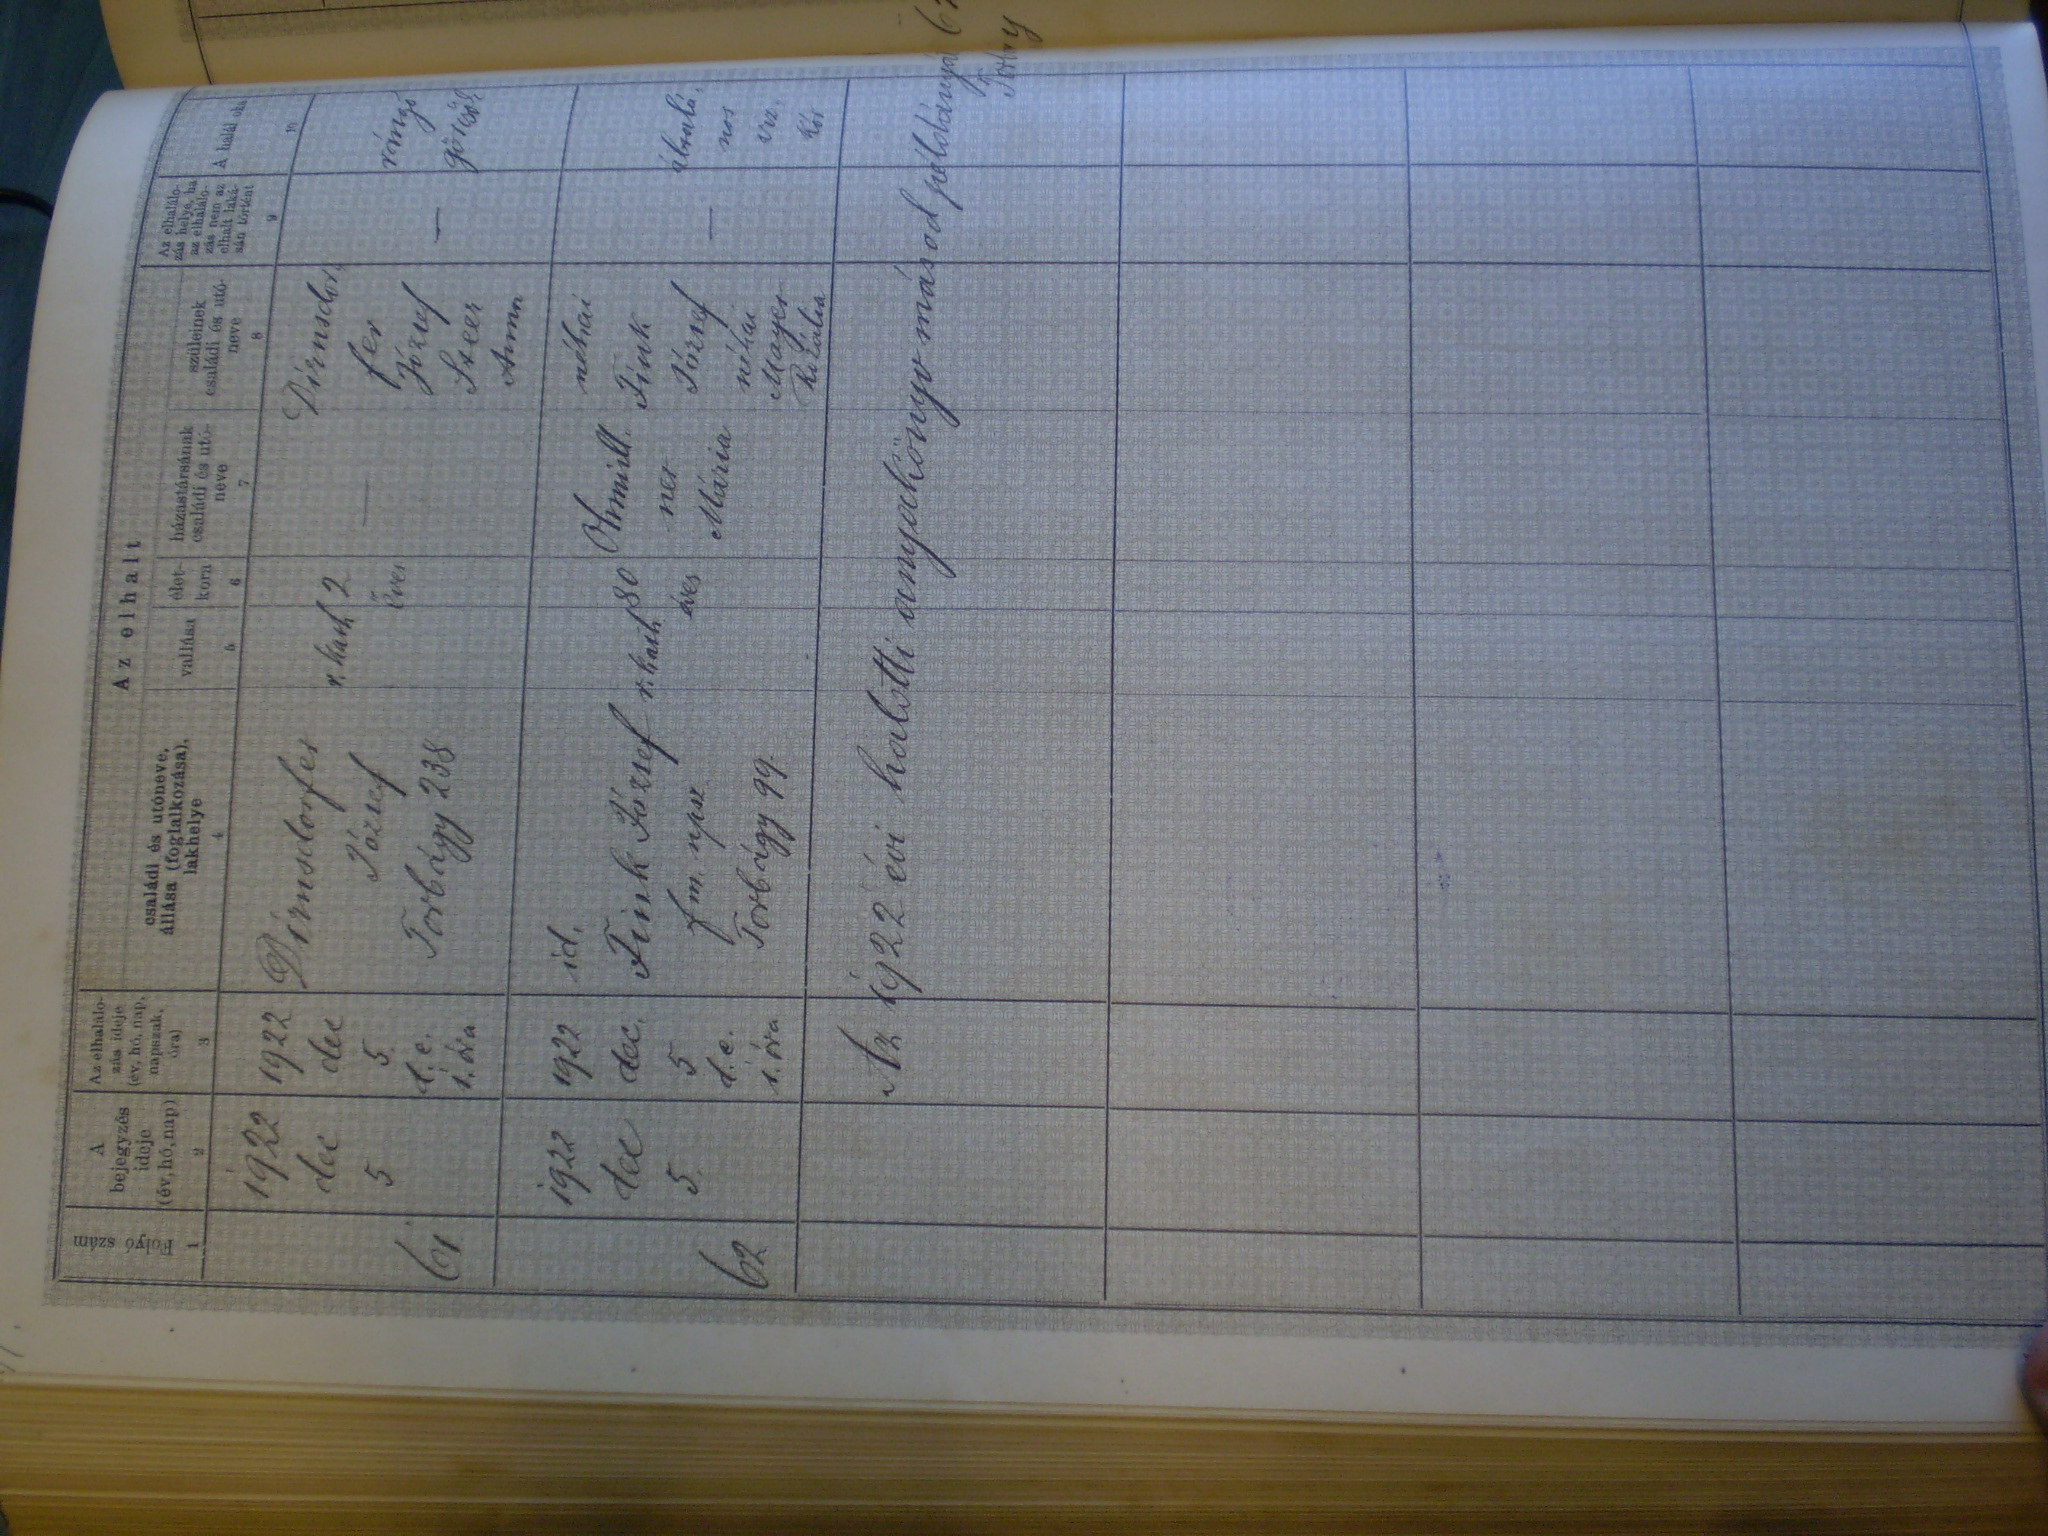 Az elhalt
Folyó szám
A
bejegyzés
ideje
(év, hó, nap)
Az elhalálo-
zás ideje
(év, hó, nap,
napszak,
óra)
családi és utóneve,
állása (foglalkozása),
lakhelye
vallása
élet-
kora
házastársának
családi és utó-
neve
szüleinek
családi és utó-
neve
Az elhalálo-
zás helye, ha
az elhaláló-
zás nem az
elhalt laká-
sán történt
A halál oka
1
2
3
4
5
6
7
8
9
10
61.
1922
dec
5
1922
dec
5.
d. e.
1. óra
Dirnsdorfer
József
Torbágy 238
r. kath
2
éves
—
Dirnsdor
fer
József
Steer
Anna
—
rángó
görcsök
62
1922
dec
5.
1922
dec.
5
d. e.
1. óra
id.
Fink József
fm. npsz
Torbágy 99.
r. kath
80
éves
ner
Mária
néhai
Fink
József
néhai
Mayer
Rozália
—
általá,
nos
víz,
kór
Az 1922 évi halotti anyakönyv másod példányát